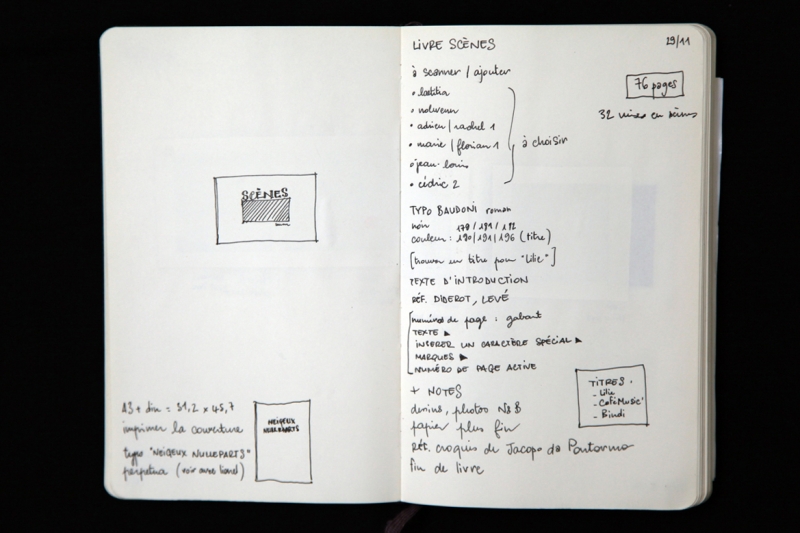 SCÈNES
A3 + dim = 31,2 x 45,7
imprimer la couverture
typo "NEIGEUX NULLEPARTS"
perpetua (voir avec lionel)
NEIGEUX
NULLEPARTS
LIVRE SCÈNES
29/11
à scanner / ajouter
76 pages
• laetitia
32 mises en scènes
• nolwenn
• adrien / rachel 1
• marie / florian 1
à choisir
• jean-louis
• cédric 2
TYPO BAUDONI roman
noir 179 / 181 / 182
couleur : 190 / 191 / 196 (titre)
[trouver un titre pour "Lilie"]
TEXTE D'INTRODUCTION
RÉF. DIDEROT, LEVÉ
numéros de page : gabarit
TEXTE ▶
INSÉRER UN CARACTÈRE SPÉCIAL ▶
MARQUES ▶
NUMÉRO DE PAGE ACTIVE
TITRES :
- Lilie
- Café Music'
- Bindi
+ NOTES
dessins, photos N&B
papier plus fin
Réf. croquis de Jacopo da Pontormo
fin de livre